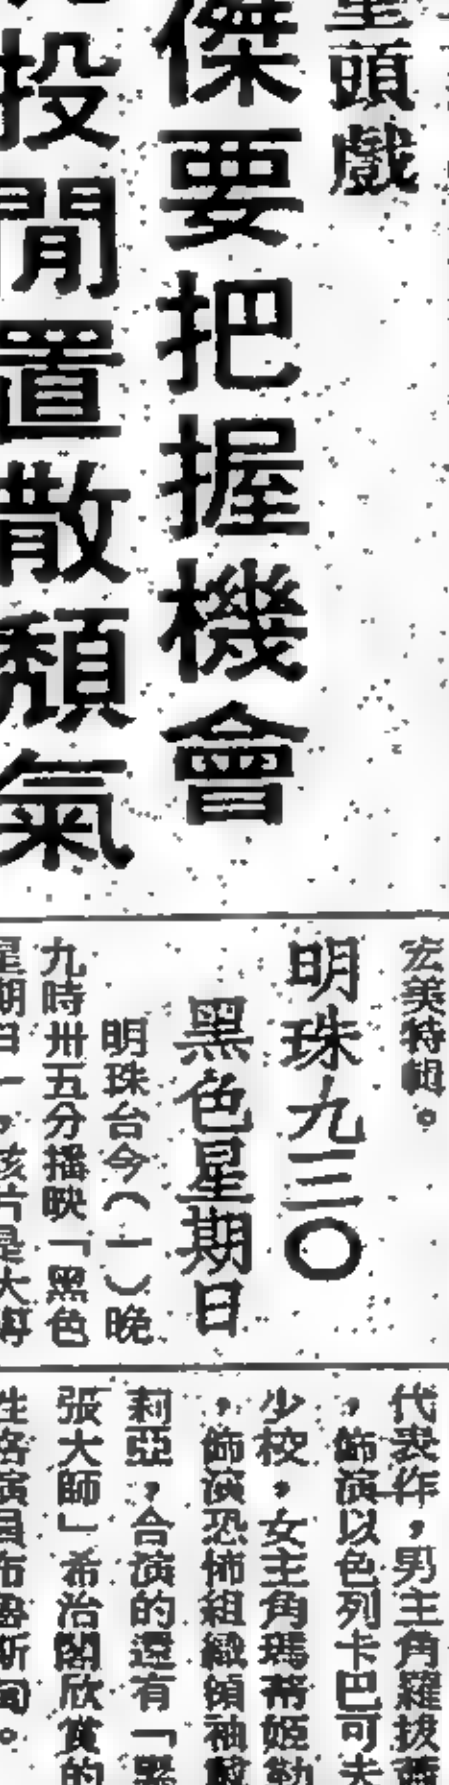 頭戲
傑要把握機會
投閒置散頹氣
宏美特輯。
明珠九三〇
黑色星期日
明珠台今(一)晚
九時卅五分播映「黑色
星期日」,該片是大導
代表作,男主角羅拔
,飾演以色列卡巴可夫
少校,女主角瑪蒂姬勒
,飾演恐怖組織領袖
莉亞,合演的還有「緊
張大師」希治閣欣賞的
性格演員布魯斯甸。